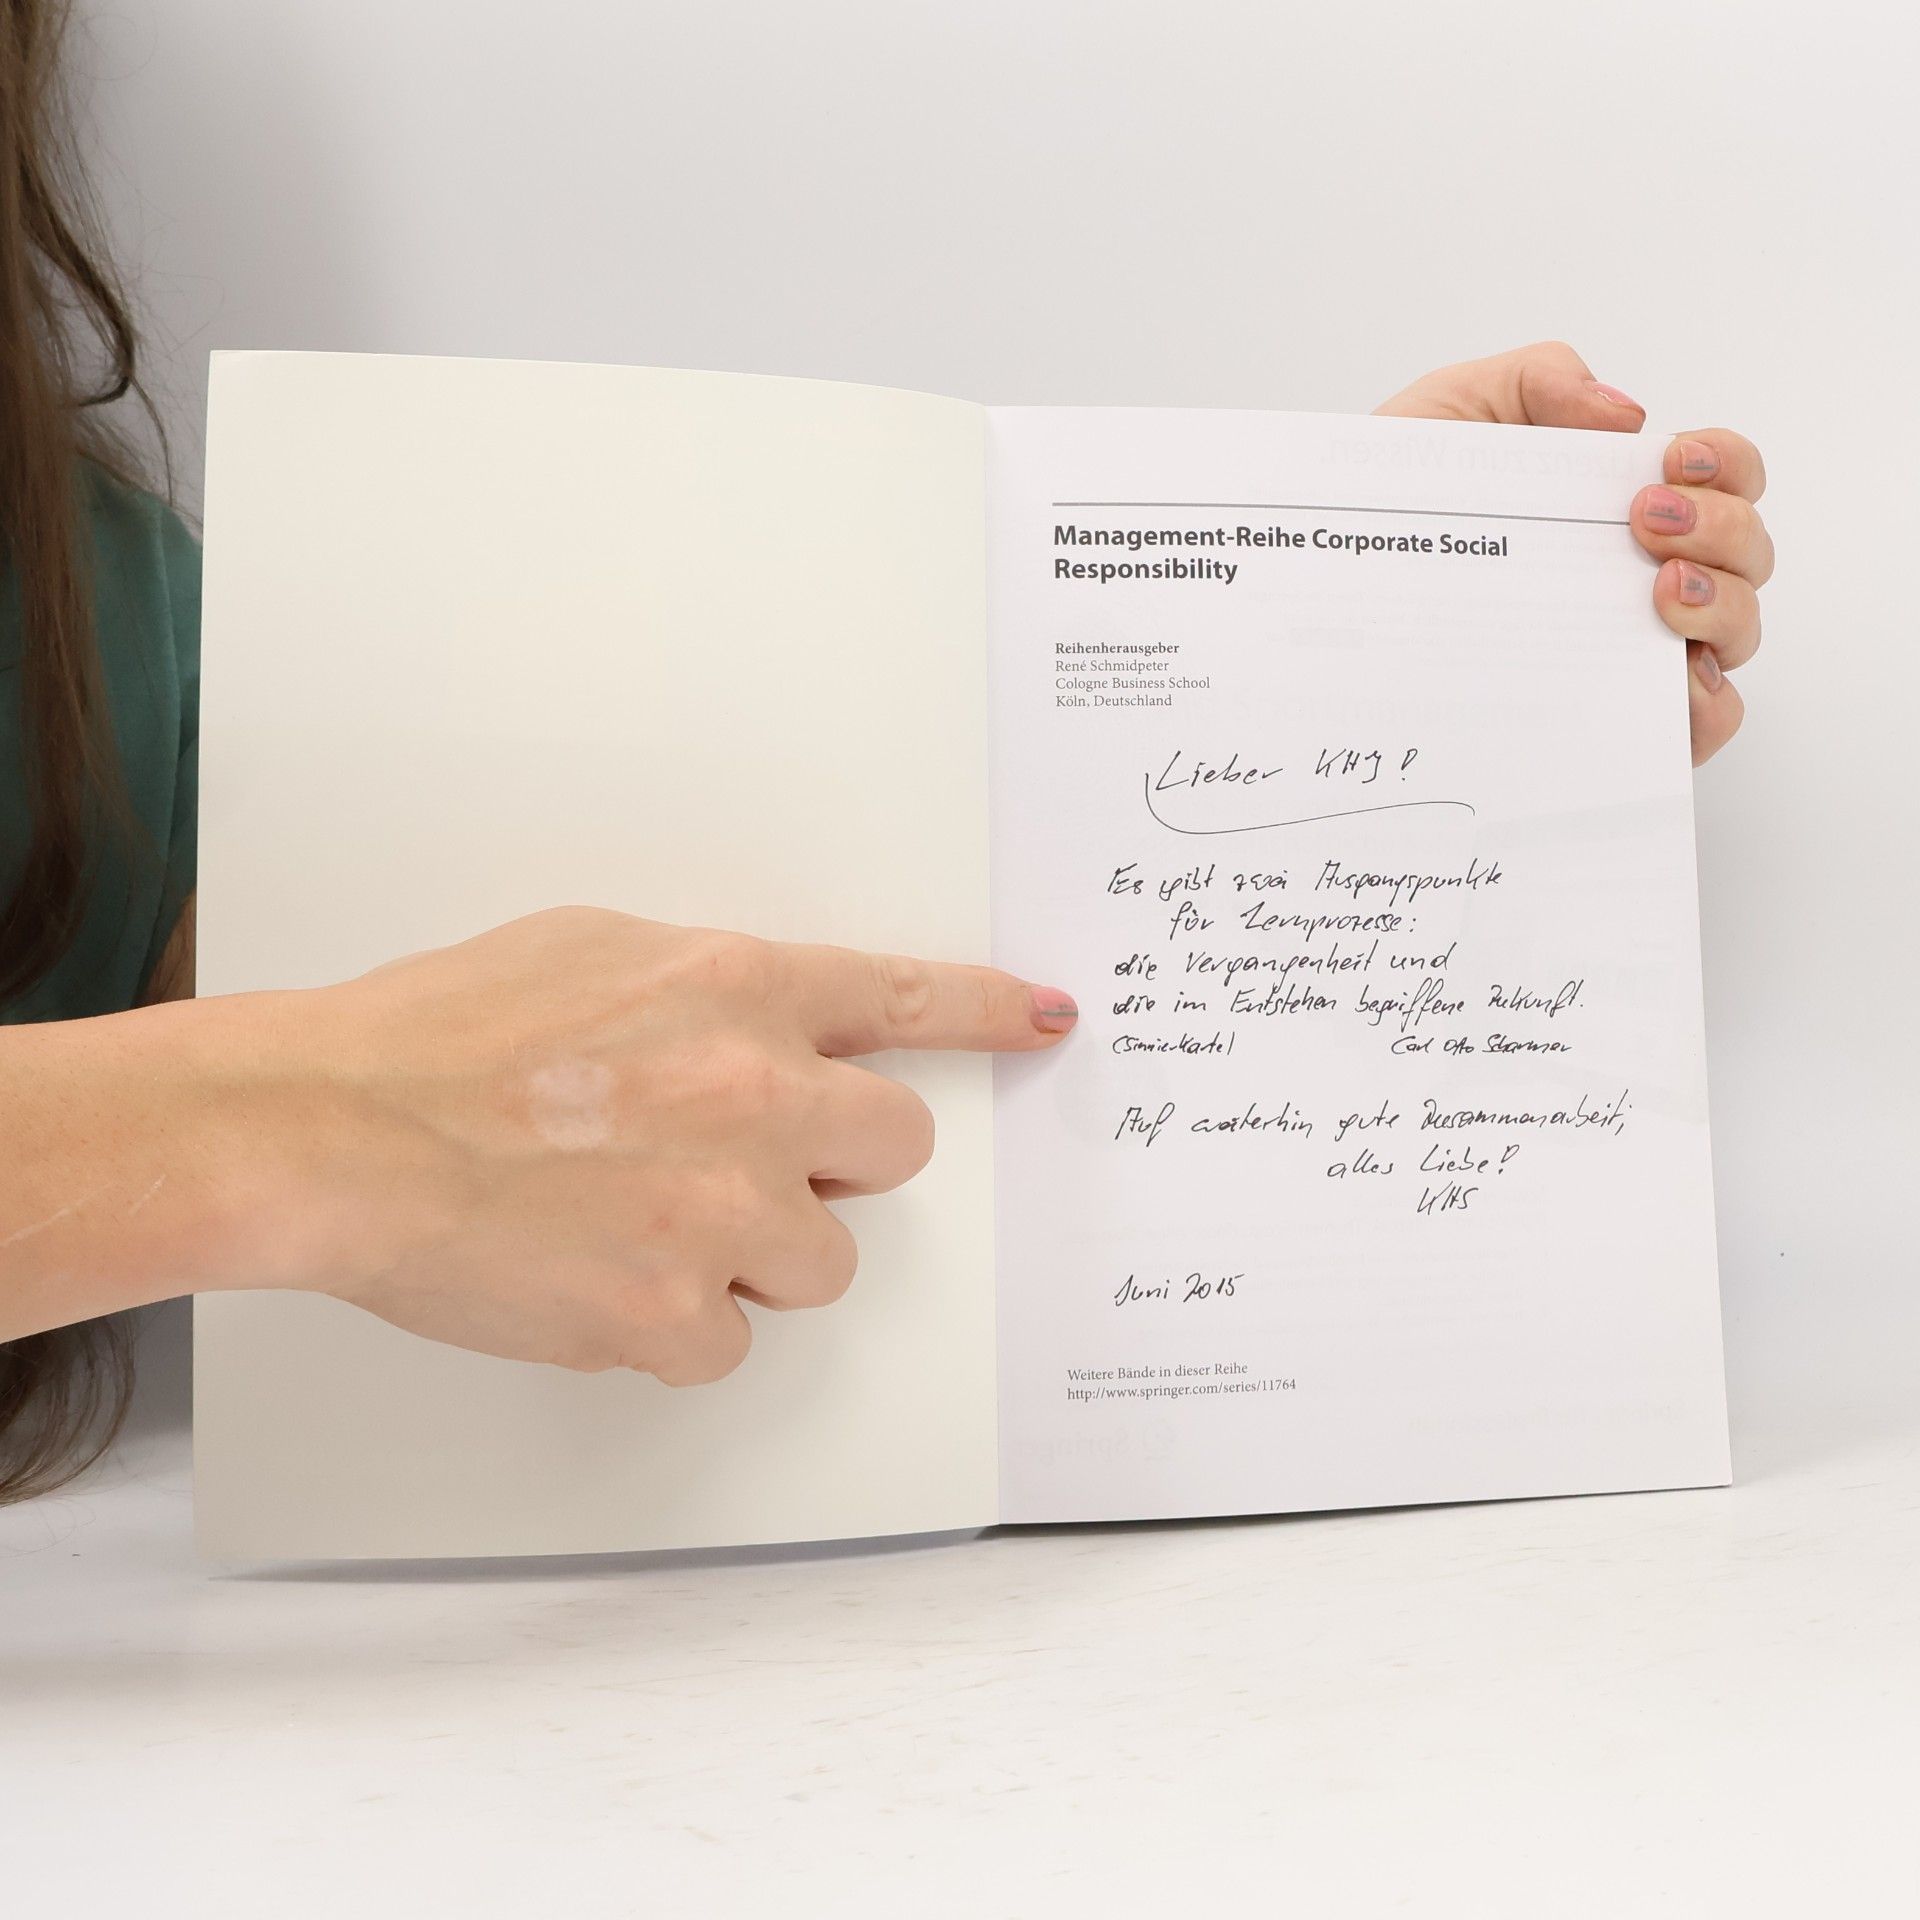 Management-Reihe Corporate Social
Responsibility
Reihenherausgeber
René Schmidpeter
Cologne Business School
Köln, Deutschland
Lieber KHJ!
Es gibt zwei Ausgangspunkte
für Lernprozesse:
die Vergangenheit und
die im Entstehen begriffene Zukunft.
(Sinnierkarte) Carl Otto Scharmer
Auf weiterhin gute Zusammenarbeit,
alles Liebe!
KHS
Juni 2015
Weitere Bände in dieser Reihe
http://www.springer.com/series/11764